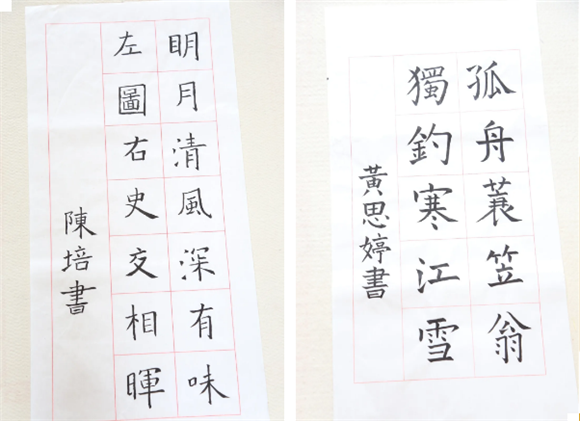 明月清風深有味
左圖右史交相暉
陳培書
孤舟蓑笠翁
獨釣寒江雪
黃思婷書